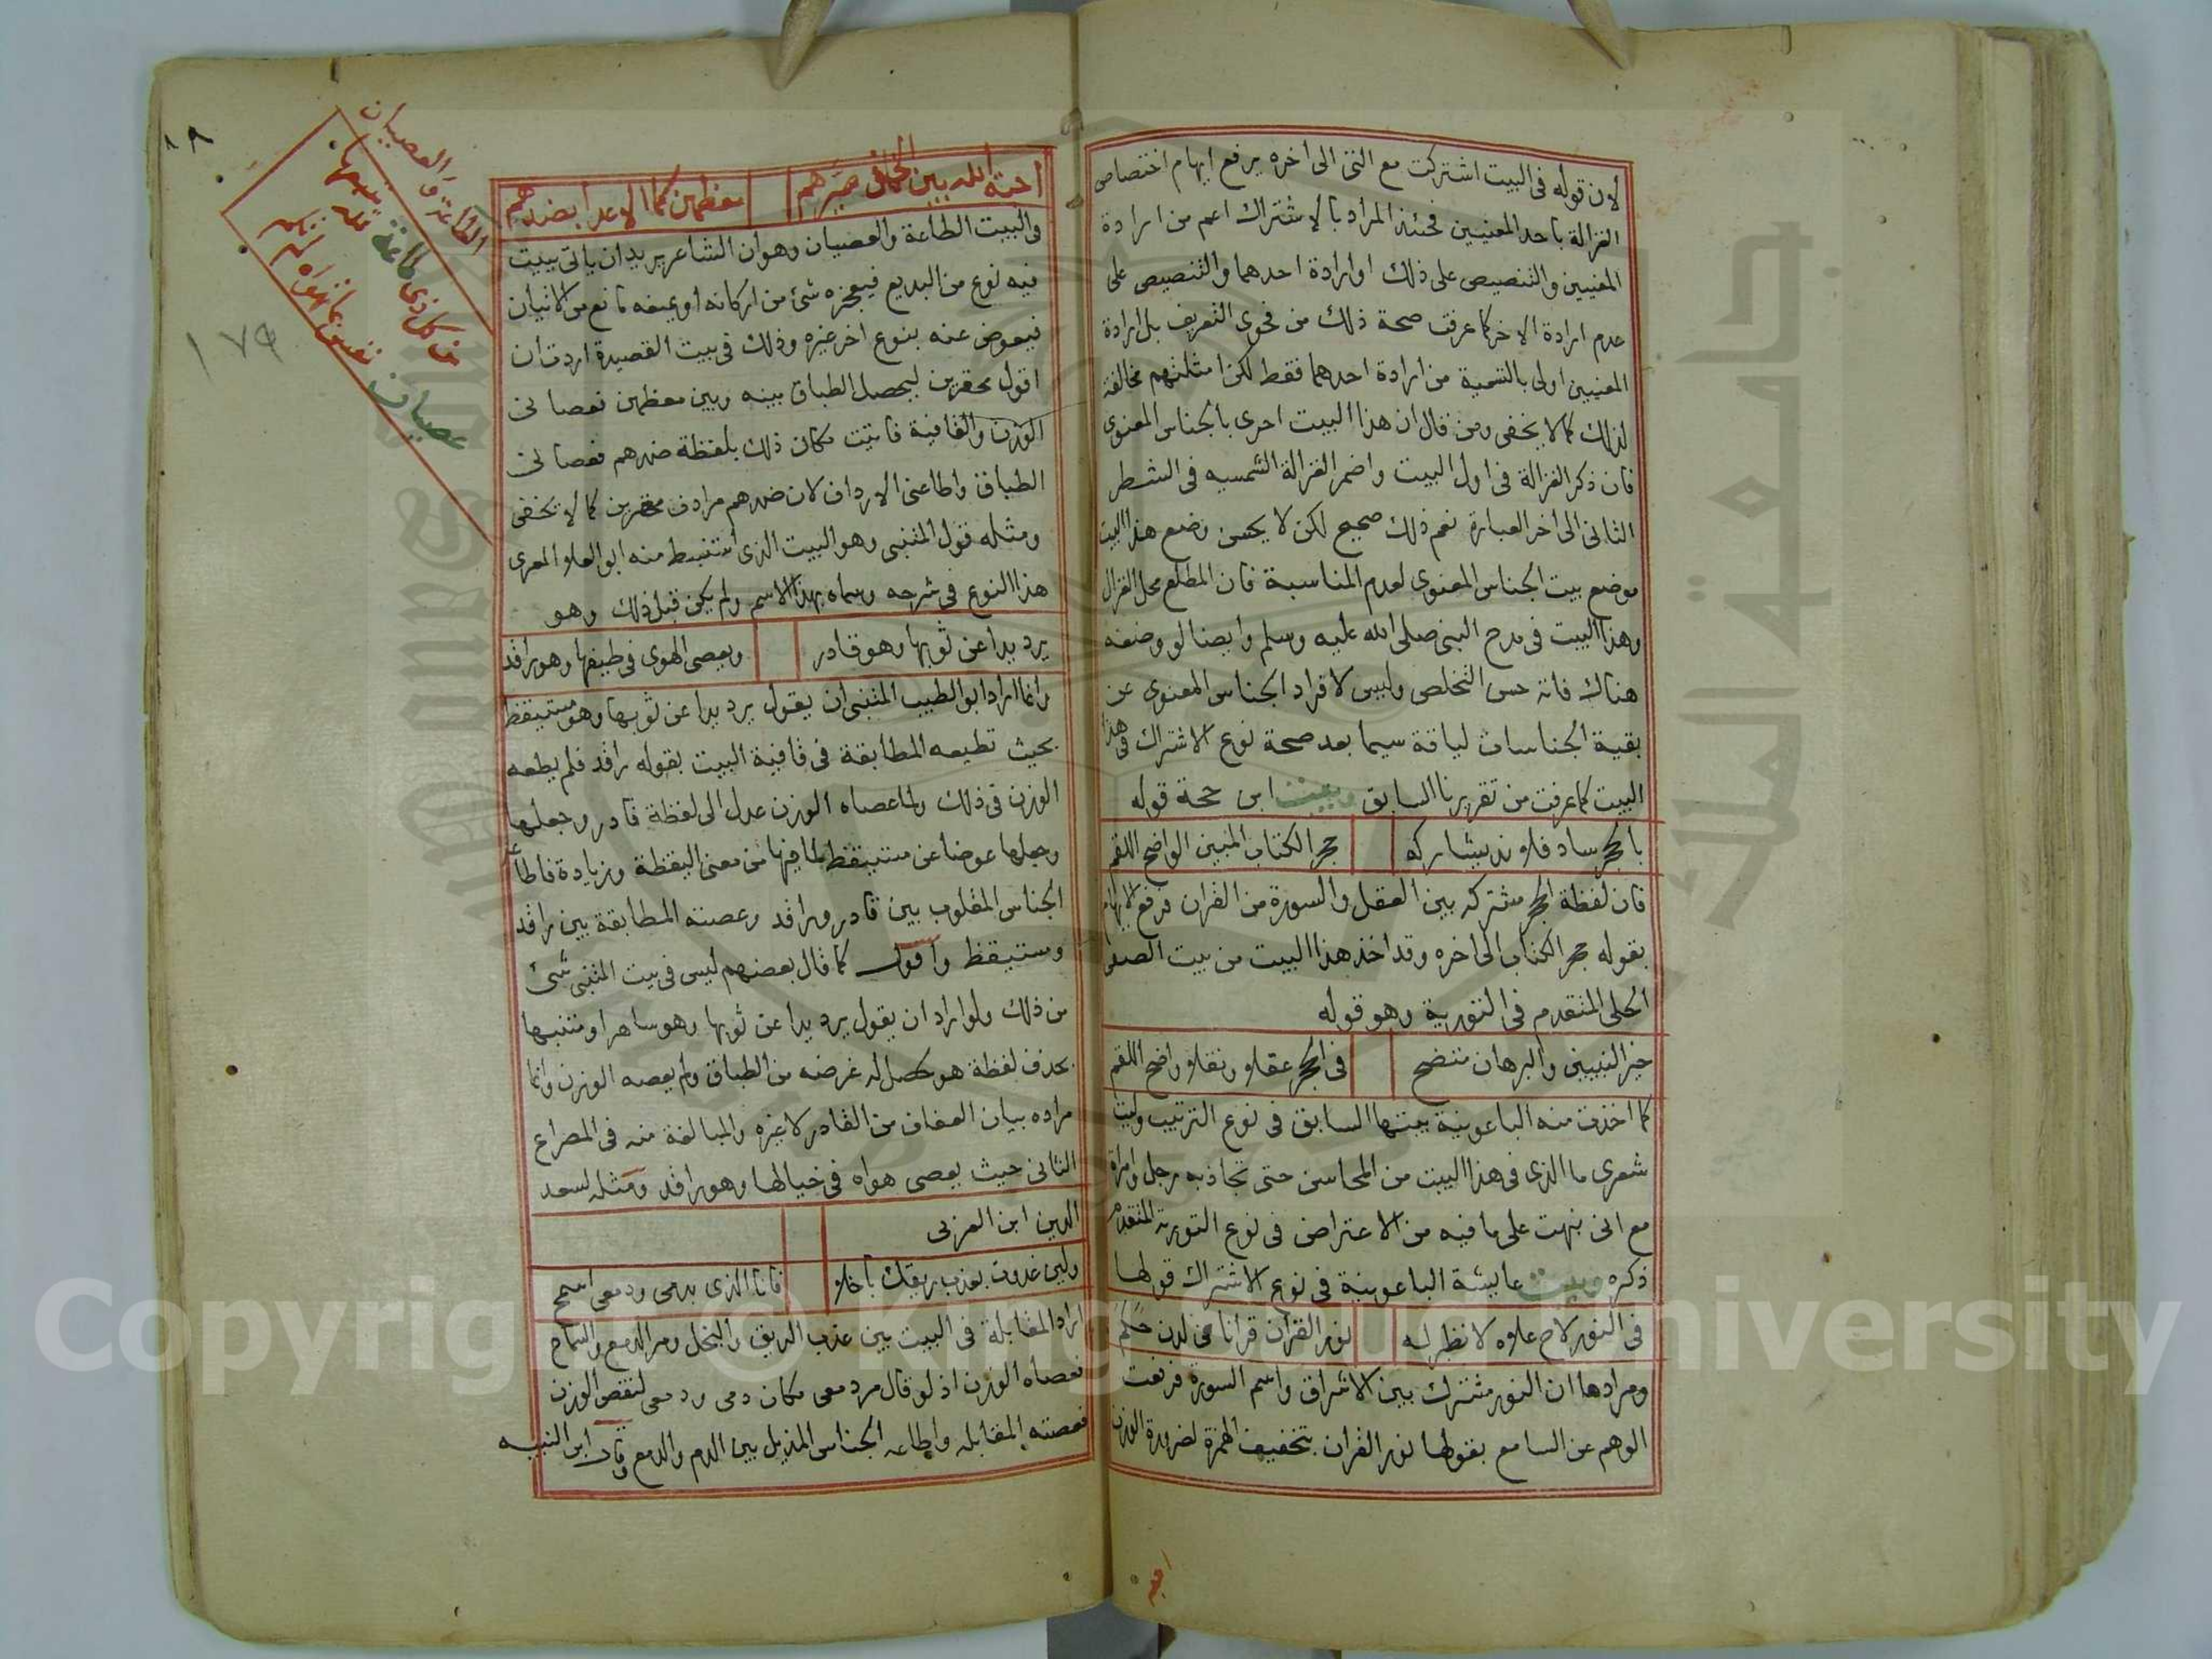 لان قوله فى البيت اشتركت مع الثنى الى اخره يرفع ايهام اختصاص
الغزالة باحد المعنيين فحينئذ المراد بالاشتراك اعم من ارادة
المعنيين والتنصيص على ذلك او ارادة احدهما والتنصيص على
عدم ارادة الاخر كما عرفت صحة ذلك من فحوى التعريف بل ارادة
المعنيين اولى بالتسمية من ارادة احدهما فقط لكن امثلتهم مخالفة
لذلك كما لا يخفى ومن قال ان هذا البيت احرى بالجناس المعنوى
فان ذكر الغزالة فى اول البيت واضمر الغزالة الشمسيه فى الشطر
الثانى الى اخر العبارة نعم ذلك صحيح لكن لا يحسن وضع هذا البيت
موضع بيت الجناس المعنوى لعدم المناسبة فان المطلع محل الغزال
وهذا البيت فى مدح النبى صلى الله عليه وسلم وايضا لو وضعه
هناك فاته حسن التخلص وليس لافراد الجناس المعنوى عن
بقية الجناسات لياقة سيما بعد صحة نوع الاشتراك فى هذا
البيت كما عرفت من تقريرنا السابق وبيت ابن حجة قوله
بالحجر ساد فلا ند يشاركه حجر الكتاب المبين الواضح اللقم
فان لفظة الحجر مشتركه بين العقل والسورة من القران فرفع الايهام
بقوله حجر الكتاب الى اخره وقد اخذ هذا البيت من بيت الصفى
الحلى المتقدم فى التورية وهو قوله
خير النبيين والبرهان متضح فى الحجر عقلا ونقلا واضح اللقم
كما اخذت منه الباعونية بيتها السابق فى نوع الترتيب وليت
شعرى ما الذى فى هذا البيت من المحاسن حتى تجاذبه رجل وامراة
مع انى نبهت على ما فيه من الاعتراض فى نوع التورية المتقدم
ذكره وبيت عايشة الباعونية فى نوع الاشتراك قولها
فى النور لاح علاه لا نظير له نور القران قرانا من لدن حكم
ومرادها ان النور مشترك بين الاشراق واسم السورة فرفعت
الوهم عن السامع بقولها نور القران بتخفيف الهمزة لضرورة الوزن
احبة الله بين الخلق صيرهم معظمين كما الاعدا بضدهم
فى البيت الطاعة والعصيان وهو ان الشاعر يريد ان ياتى ببيت
فيه نوع من البديع فيعجزه شئ من اركانه او يمنعه مانع من الاتيان
فيعوض عنه بنوع اخر غيره وذلك فى بيت القصيدة اردت ان
اقول محقرين ليحصل الطباق بينه وبين معظمين فعصانى
الوزن والقافية فاتيت مكان ذلك بلفظة ضدهم فعصانى
الطباق واطاعنى الارداف لان ضدهم مرادف محقرين كما لا يخفى
ومثله قول المتنبى وهو البيت الذى استنبط منه ابو العلا المعرى
هذا النوع فى شرحه وسماه بهذا الاسم ولم يكن قبل ذلك وهو
يرد يدا عن ثوبها وهو قادر ويعصى الهوى فى طيفها وهو راقد
وانما اراد ابو الطيب المتنبى ان يقول يرد يدا عن ثوبها وهو مستيقظ
بحيث تطيعه المطابقة فى قافية البيت بقوله راقد فلم يطعه
الوزن فى ذلك ولما عصاه الوزن عدل الى لفظة قادر وجعلها
وجعلها عوضا عن مستيقظ لما فيها من معنى اليقظة وزيادة فاطاعه
الجناس المقلوب بين قادر وراقد وعصته المطابقة بين راقد
ومستيقظ واقول كما قال بعضهم ليس فى بيت المتنبى شئ
من ذلك ولو اراد ان يقول يرد يدا عن ثوبها وهو ساهر او متنبها
بحذف لفظة هو لحصل له غرضه من الطباق ولم يعصه الوزن وانما
مراده بيان العفاف من القادر لا غيره والمبالغة منه فى المصراع
الثانى حيث يعصى هواه فى خيالها وهو راقد ومثله لسعد
الدين ابن العزبى
ولين غدوت بعذب ريقك باخلا فانا الذى بدمى ودمعى اسمح
اراد المقابلة فى البيت بين عذب الريق والبخل ومر الدمع والسماح
فعصاه الوزن اذ لو قال مر دمعى مكان دمى ودمعى لنقص الوزن
فعصته المقابله واطاعه الجناس المذيل بين الدم والدمع وقال ابن النبيه
الطاعة والعصيان
عن كل ذى طاعة
عصيان
١٧٩